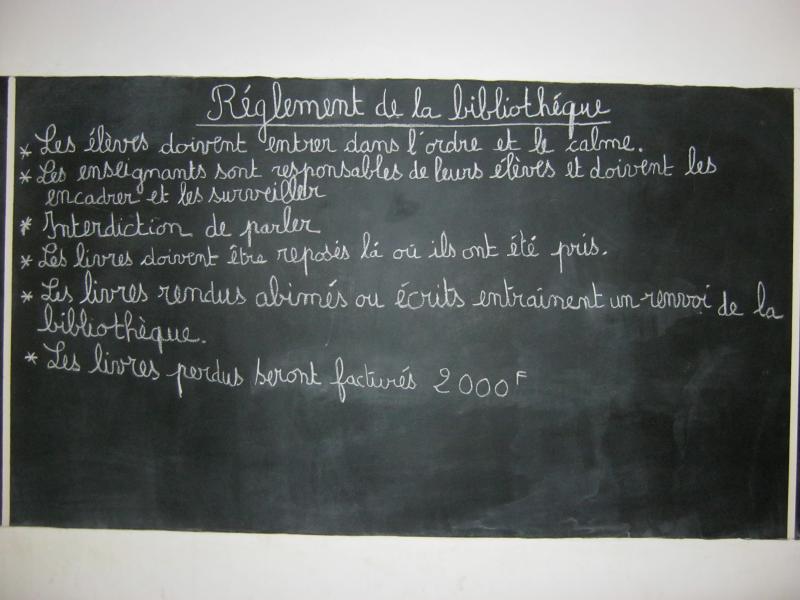 Réglement de la bibliothéque
* Les élèves doivent entrer dans l'ordre et le calme.
* Les enseignants sont responsables de leurs élèves et doivent les
encadrer et les surveiller
* Interdiction de parler
* Les livres doivent être reposés là où ils ont été pris.
* Les livres rendus abimés ou écrits entraînent un renvoi de la
bibliothèque.
* Les livres perdus seront facturés 2000F